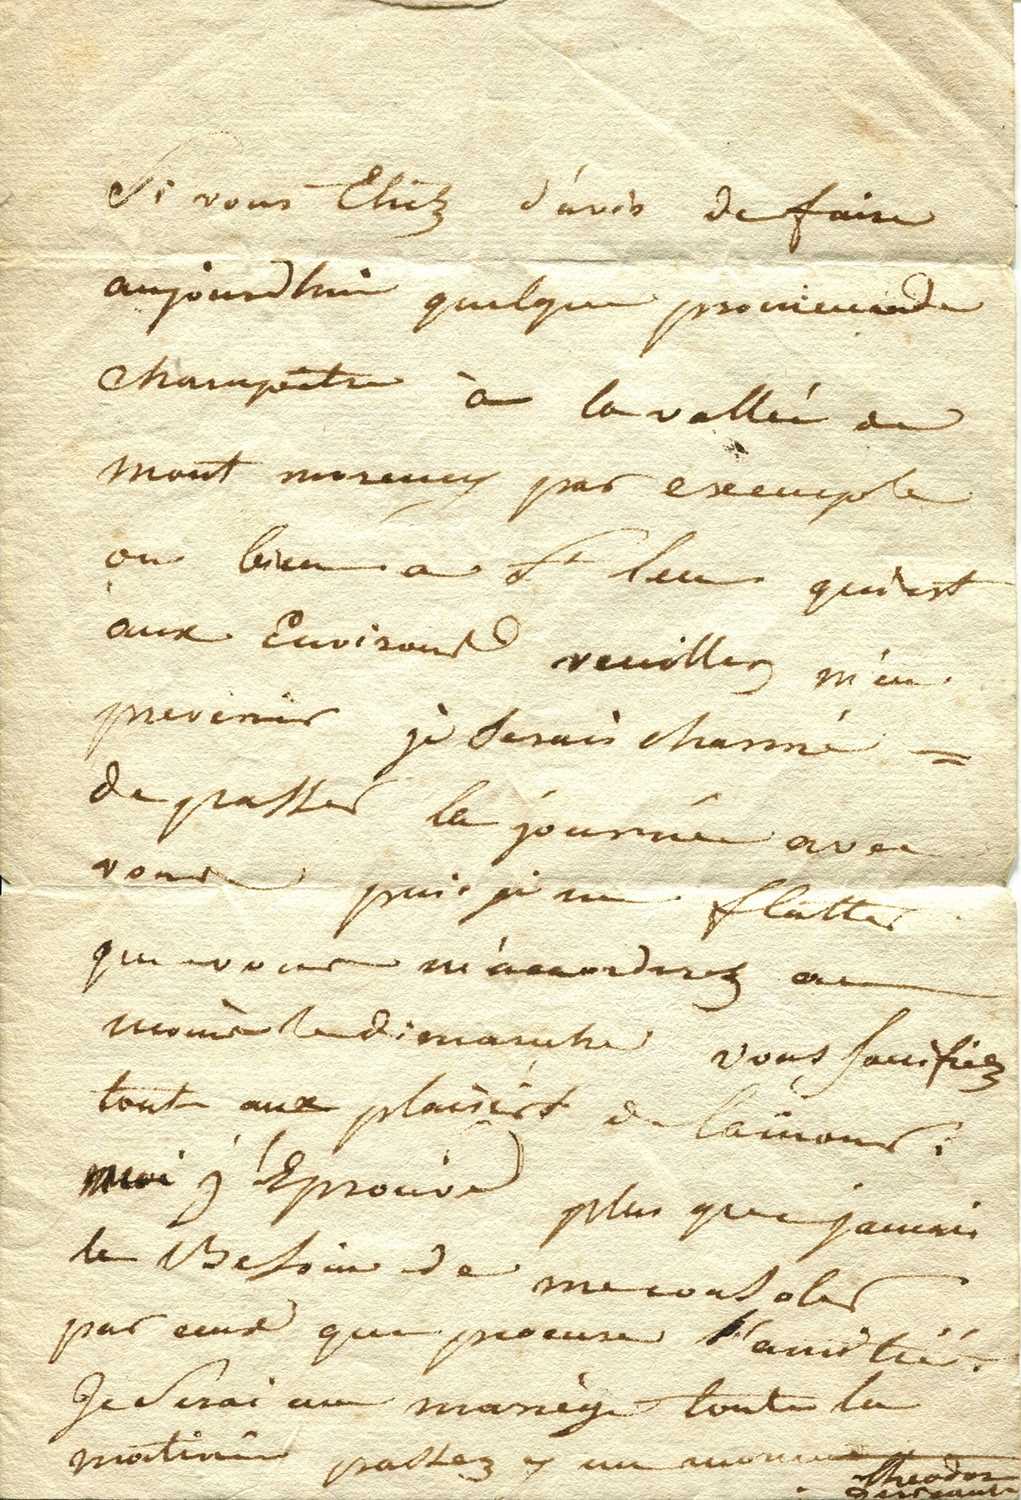 Si vous Etiez d'avis de faire
aujourdhui quelque promenade
champètre à la vallée de
mont morency par exemple
ou bien a St leu qui est
aux Environs veuillez m'en
prevenir je serais charmé =
de passer la journée avec
vous puis je me flatter
que vous m'accorderez au
moins le dimanche vous sacrifiez
tout aux plaisirs de l'amour.
moi j'Eprouve plus que jamais
le Besoin de me consoler
par ceux que procure l'amitié.
Je serai au manège toute la
matinée passez y un moment
theodor
Gericault